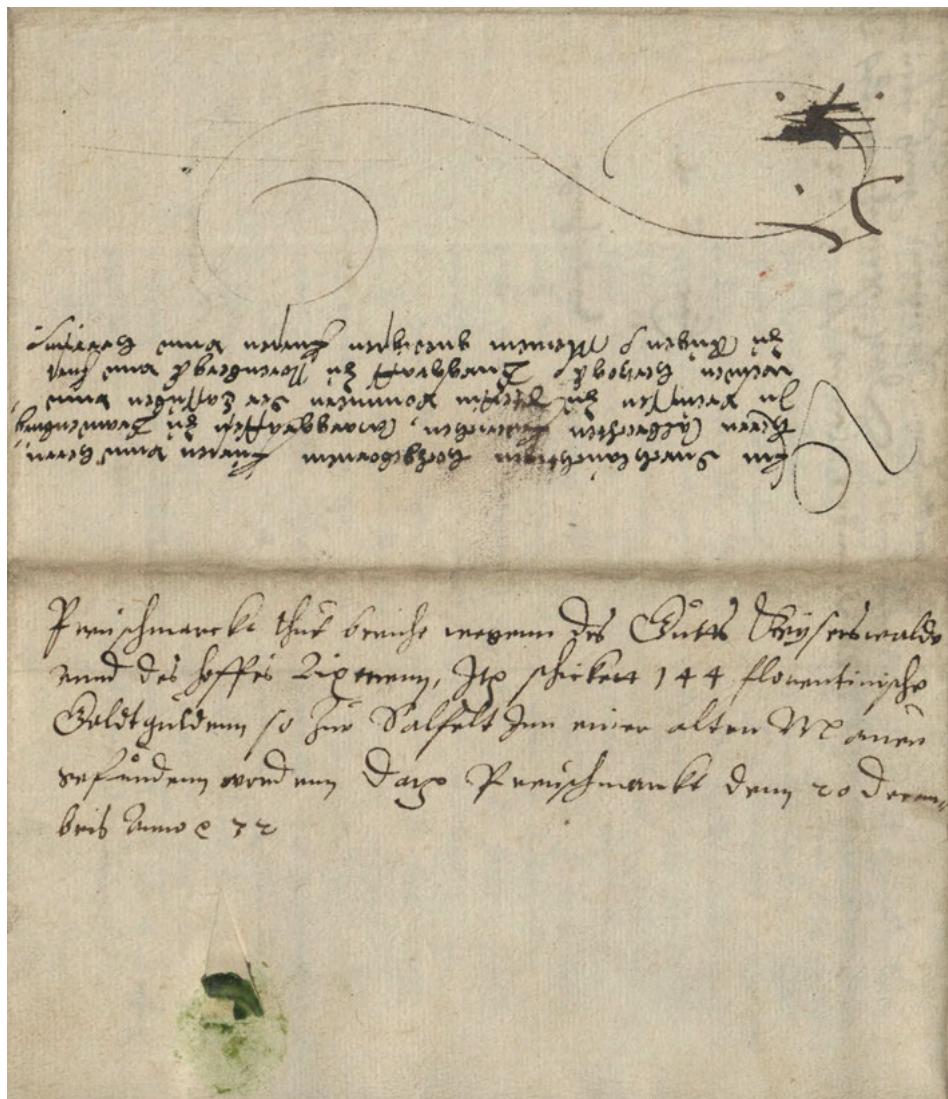 Dem durchlauchtigen hochgebornenn Fursten vnnd herrn
herrn Albrechten Friderichen, Marggraffen zu Brannenburg
In Preussen zu Stettin Pommern der Cassuben vnnd
wenden hertzogk Burggraff zu Norenbergk vnnd Furst
zu Rugen Meinem gnedigen Fursten vnnd herren
Preuschmarckt thut bericht wegenn des Gutts Keyserswalde
vnnd des hoffes Lixenenn, Itz schicket 144 florentinische
Goldtguldenn so zur Salfelt Inn einer alten Mauer
gefundenn wordenn Datz Preuschmarkt denn 20 Decem-
bris Anno 72